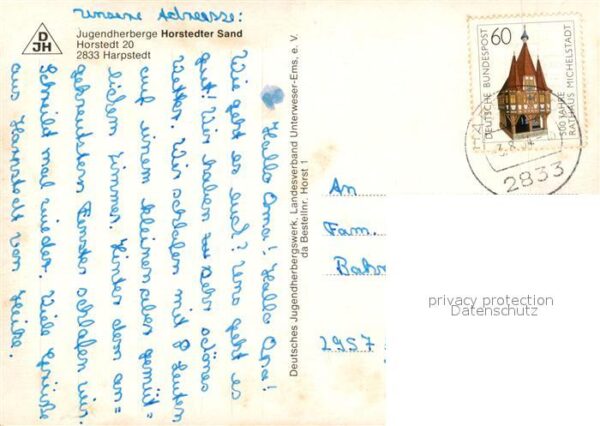 unsere Adresse:
D
JH
Jugendherberge Horstedter Sand
Horstedt 20
2833 Harpstedt
Hallo Oma! Hallo Opa!
Wie geht es euch? Uns geht es
gut! Wir haben sehr schönes
Wetter. Wir schlafen mit 8 Leuten
auf einem kleinen aber gemüt=
lichem Zimmer. Hinter dem an=
gekreutztem Fenster schlafen wir.
Schreibt mal wieder. Viele Grüße
aus Harpstedt von Heike.
Deutsches Jugendherbergswerk, Landesverband Unterweser-Ems, e. V.
da Bestellnr. Horst 1
DEUTSCHE BUNDESPOST
60
500 JAHRE
RATHAUS MICHELSTADT
2833
An
Fam.
Bahn
2957
privacy protection
Datenschutz